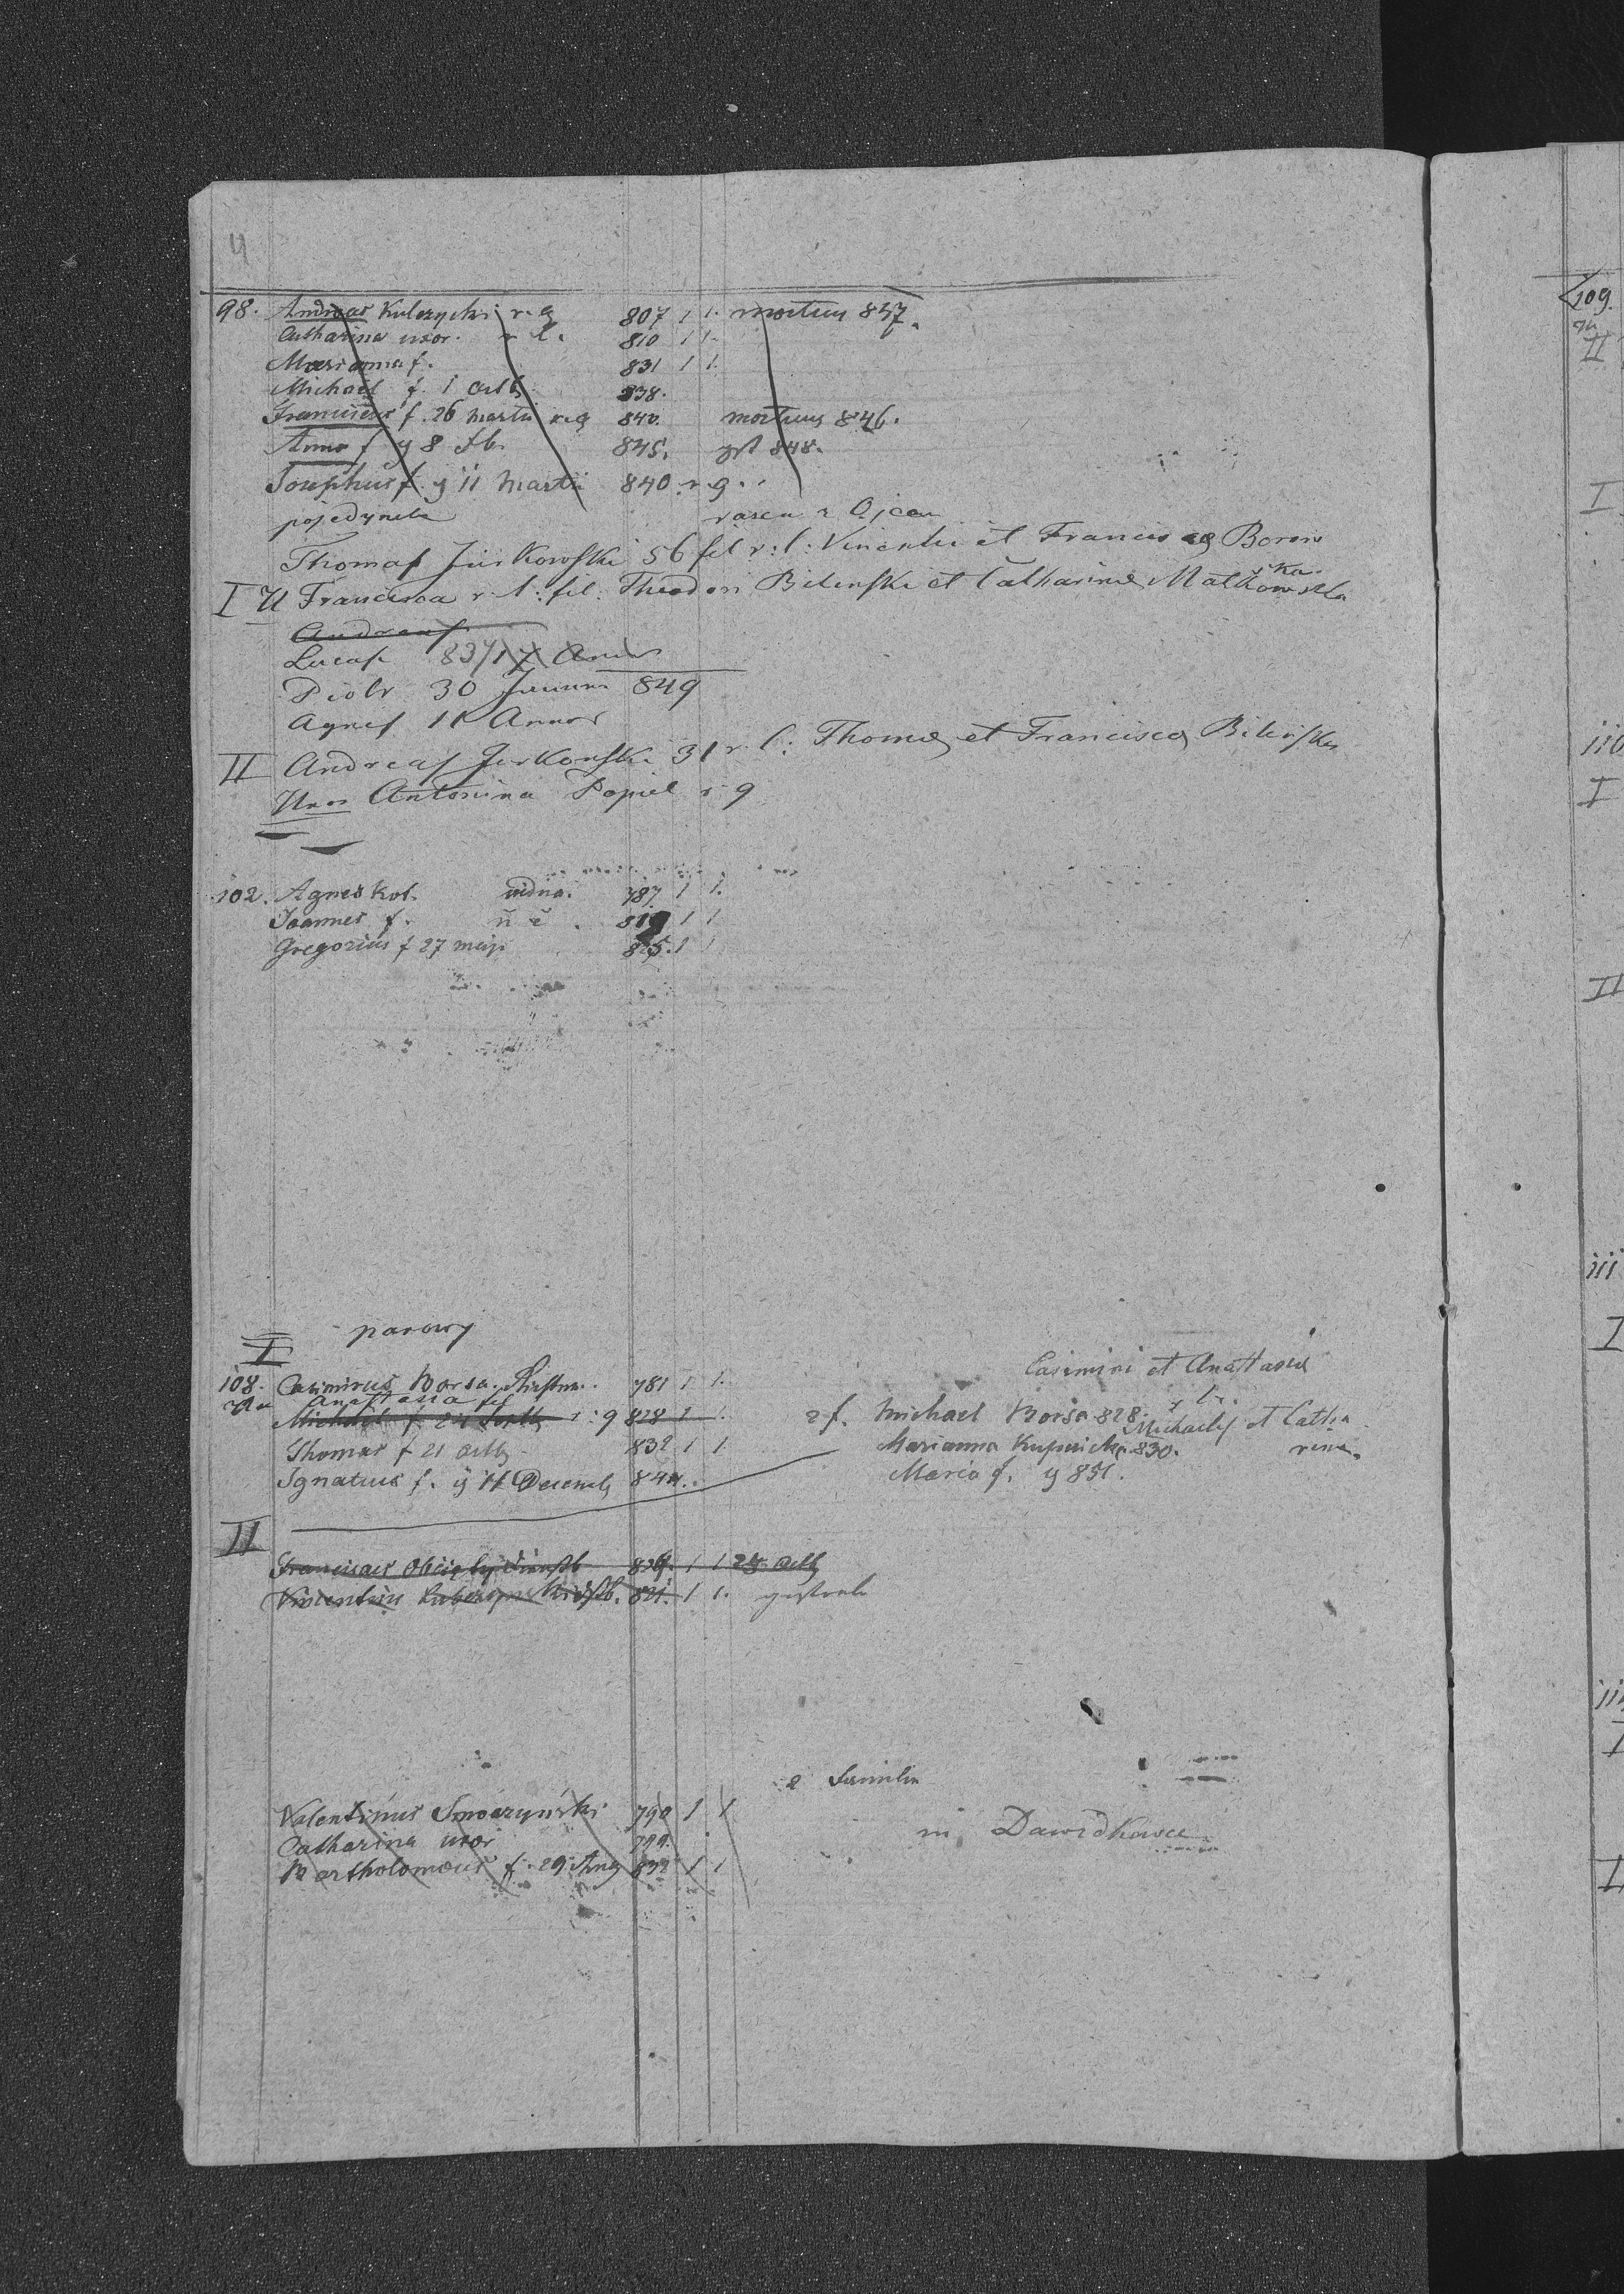 4
98. Andreas Kulczycki r. g 807 1 1. mortuus 847.
Catharina uxor. r. l. 810 1 1.
Marianna f. 831 1 1.
Michael f. 1 octb 838.
Franciscus f. 26 martii r. g 840. mortuus 846.
Anna f y 8 Feb. 845. 848.
Josephus f. y 11 Martii 840 r. g.
pojedynek razem z Ojcem
Thomas Jurkowski 56 fil r: l: Vincentii et Francisca Borow
ska
I U Francisca r. l: fil. Theodori Bilinski et Catharinæ Malkowska
Andreas
Lucas 837 17 Annos
Piotr 30 Junii 849
Agnes 11 Annos
II Andreas Jurkowski 31 r l: Thomæ et Francisca Bilinska
Uxor Antonina Popiel r g
102. Agnes Kot. vidua. 787 1 1.
Joannes f. 819 1 1
Gregorius f 27 maji 825. 1 1
I parowy
108. Casimirus Borsa. 781 1 1. Casimiri et Anastasiæ
Ux Anastasia
Michael f 24 Septb r: g 828 1 1. 2 f. Michael Borsa 828. r. l.
Thomas f 21 octb 832 1 1. Marianna 830. Michaelis et Catha
rina.
Ignatius f. y 11 Decemb 844. Maria f. y 851.
II
Franciscus 1 1 octb
Vincentius 821. 1 1.
2 familia
Valentinus Smoczynski 790 1 1
in Dawidkowce
Catharina uxor 799.
Bartholomæus f. 29 Aug 832 1 1
109.
II
I
II
I